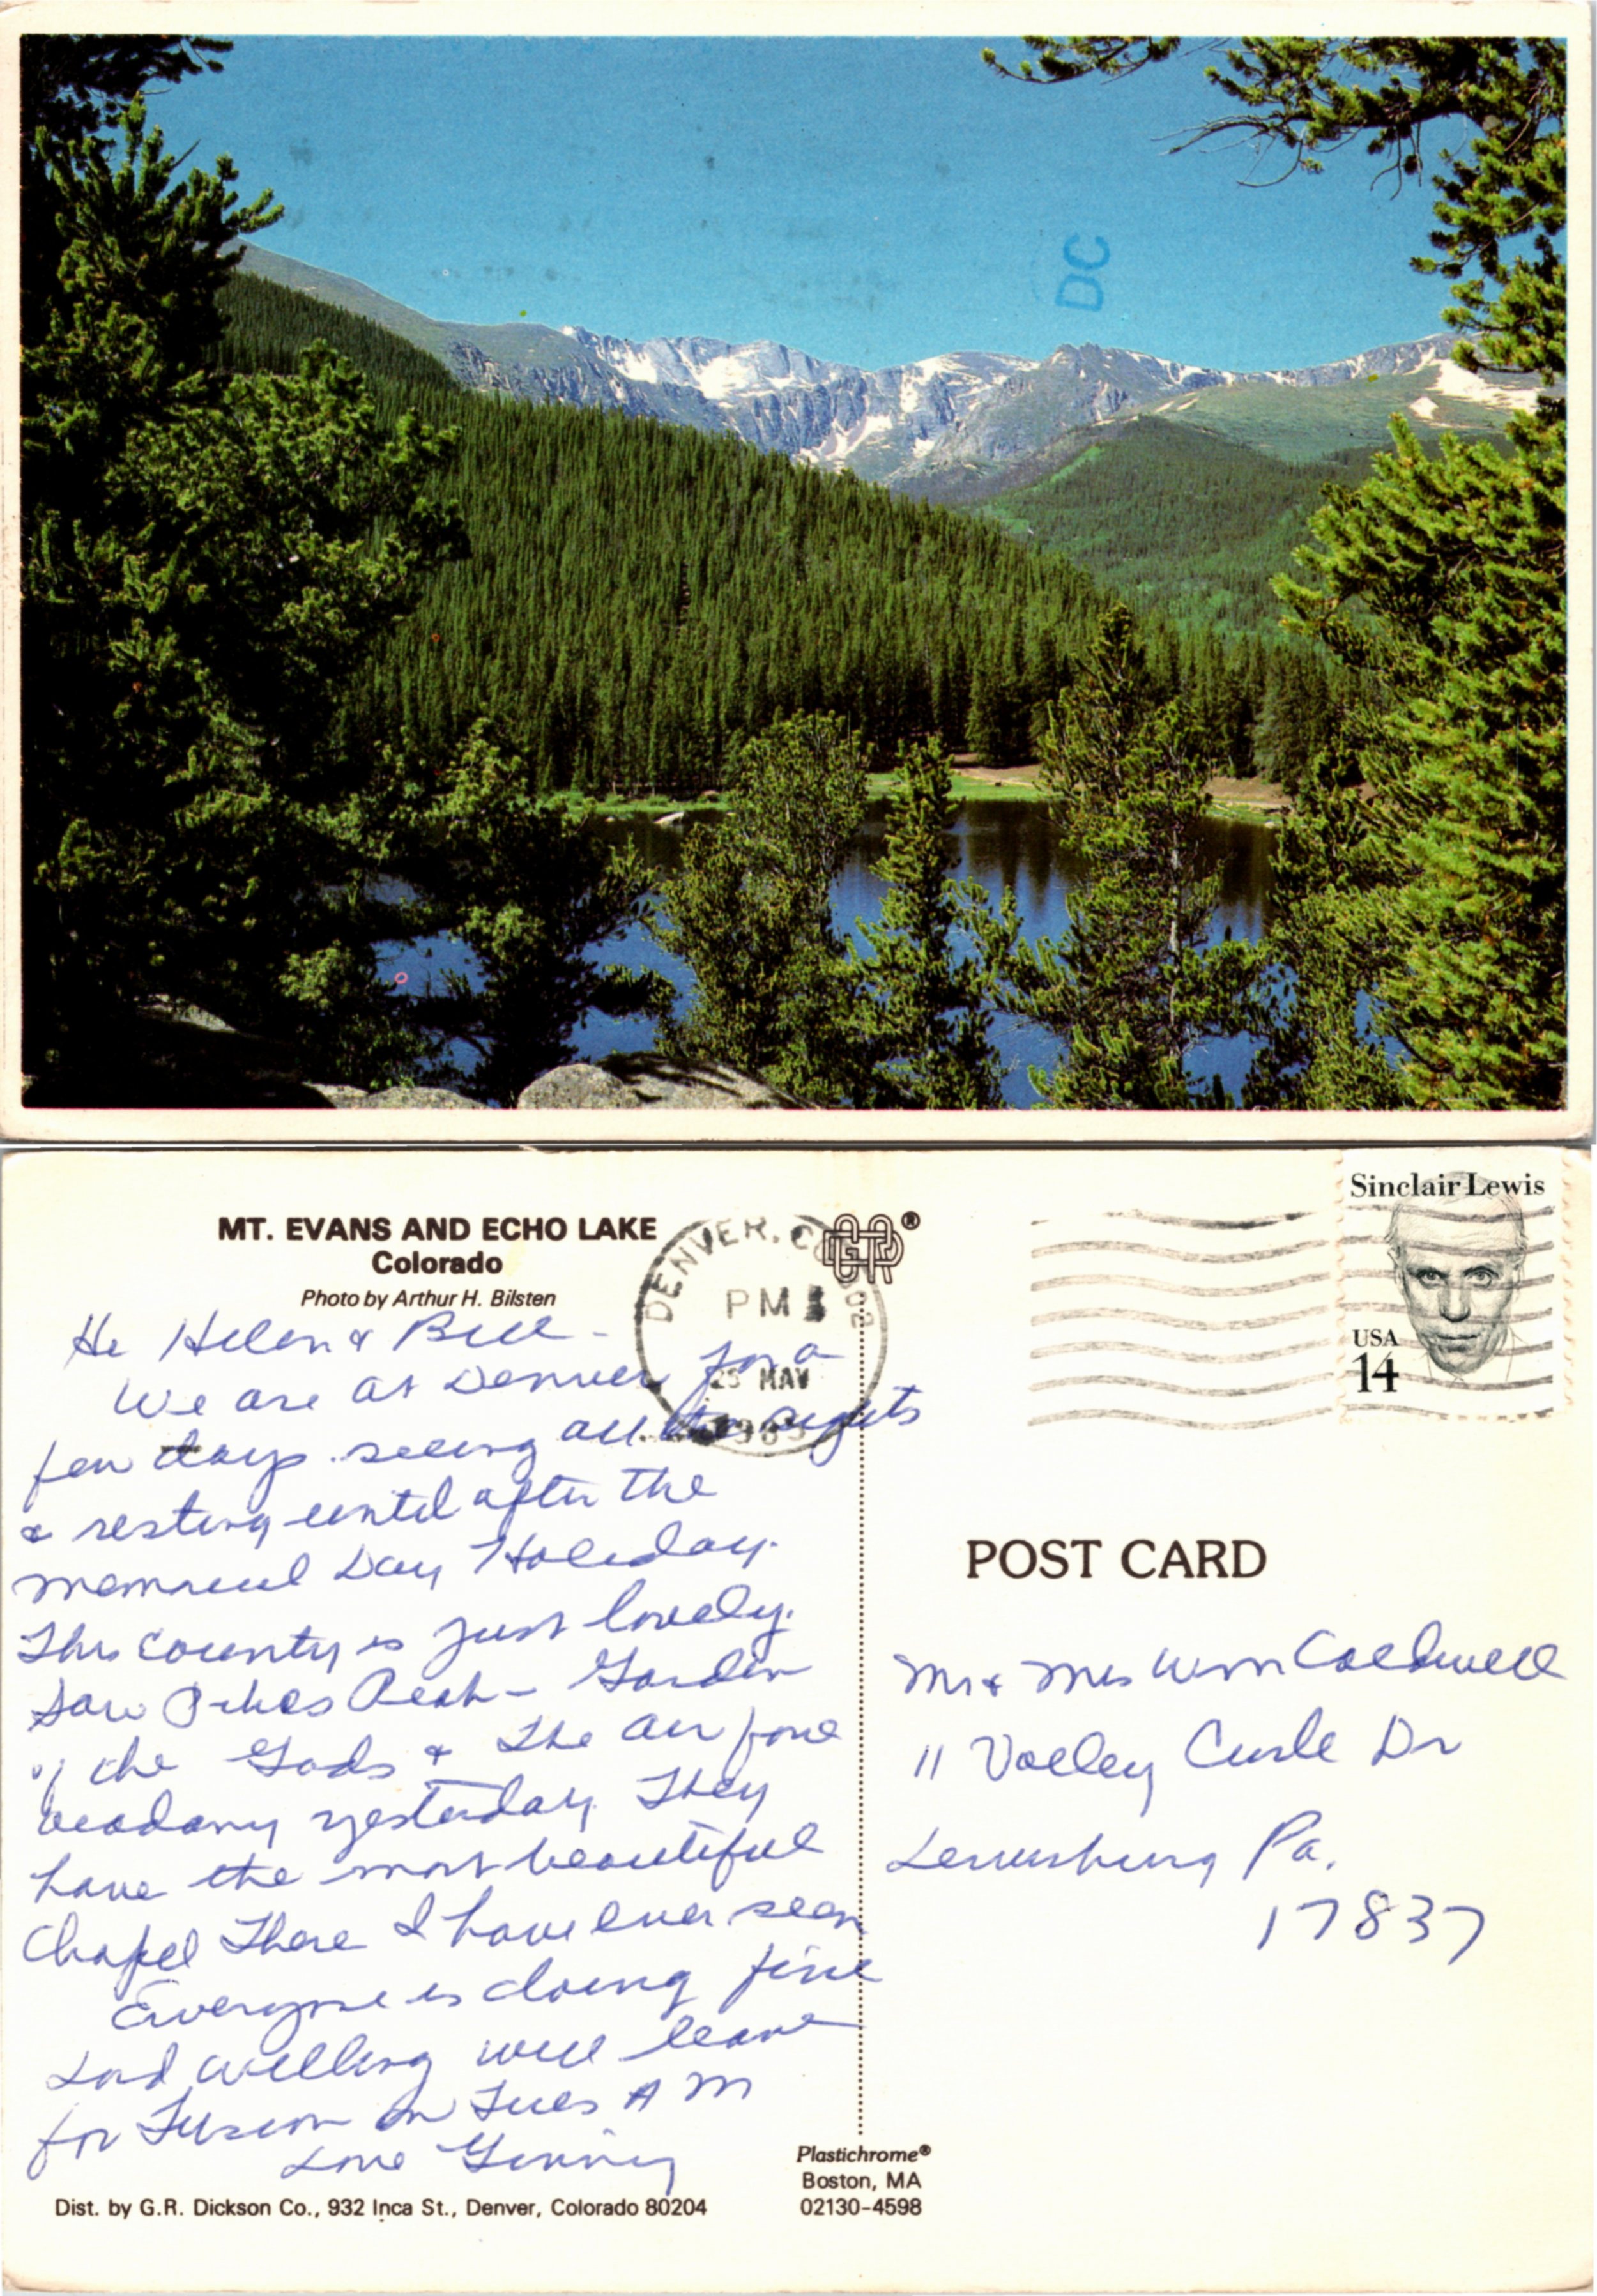 DC
MT. EVANS AND ECHO LAKE
Colorado
Photo by Arthur H. Bilsten
Hi Helen & Bill -
We are at Denver for a
few days seeing all the sights
& resting until after the
Memorial Day Holiday.
This country is just lovely.
Saw Pikes Peak - Garden
of the Gods & The Air force
academy yesterday. They
have the most beautiful
Chapel There I have ever seen
Everyone is doing fine
Lord willing will leave
for Tucson on Tues AM
Love Ginny
Dist. by G.R. Dickson Co., 932 Inca St., Denver, Colorado 80204
DENVER, CO 802
PM
25 MAY
1985
GRD®
Sinclair Lewis
USA
14
POST CARD
Mr & Mrs Wm Caldwell
11 Valley Circle Dr
Lewisburg Pa.
17837
Plastichrome®
Boston, MA
02130-4598